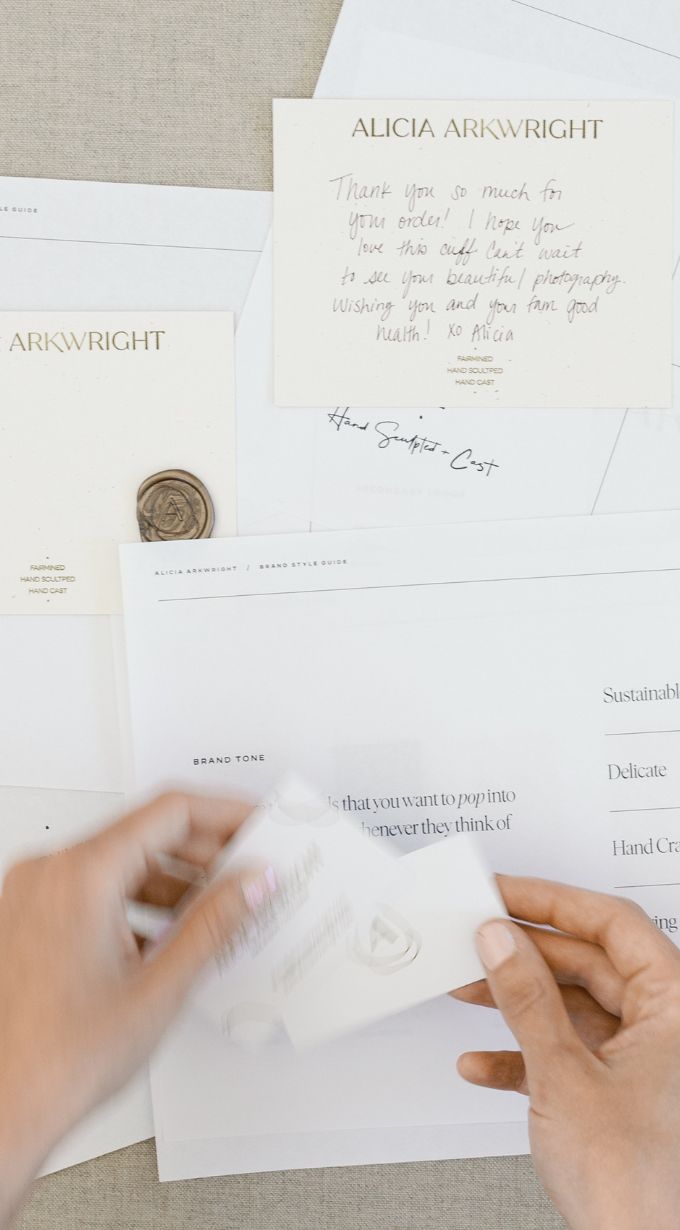 ALICIA ARKWRIGHT
Thank you so much for
your order! I hope you
love this cuff Can't wait
to see your beautiful photography.
Wishing you and your fam good
health! xo Alicia
FAIRMINED
HAND SCULTPED
HAND CAST
LE GUIDE
ARKWRIGHT
FAIRMINED
HAND SCULTPED
HAND CAST
A
Hand Sculpted + Cast
SECONDARY LOGOS
ALICIA ARKWRIGHT / BRAND STYLE GUIDE
BRAND TONE
that you want to pop into
whenever they think of
Sustainabl
Delicate
Hand Cra
ing
A